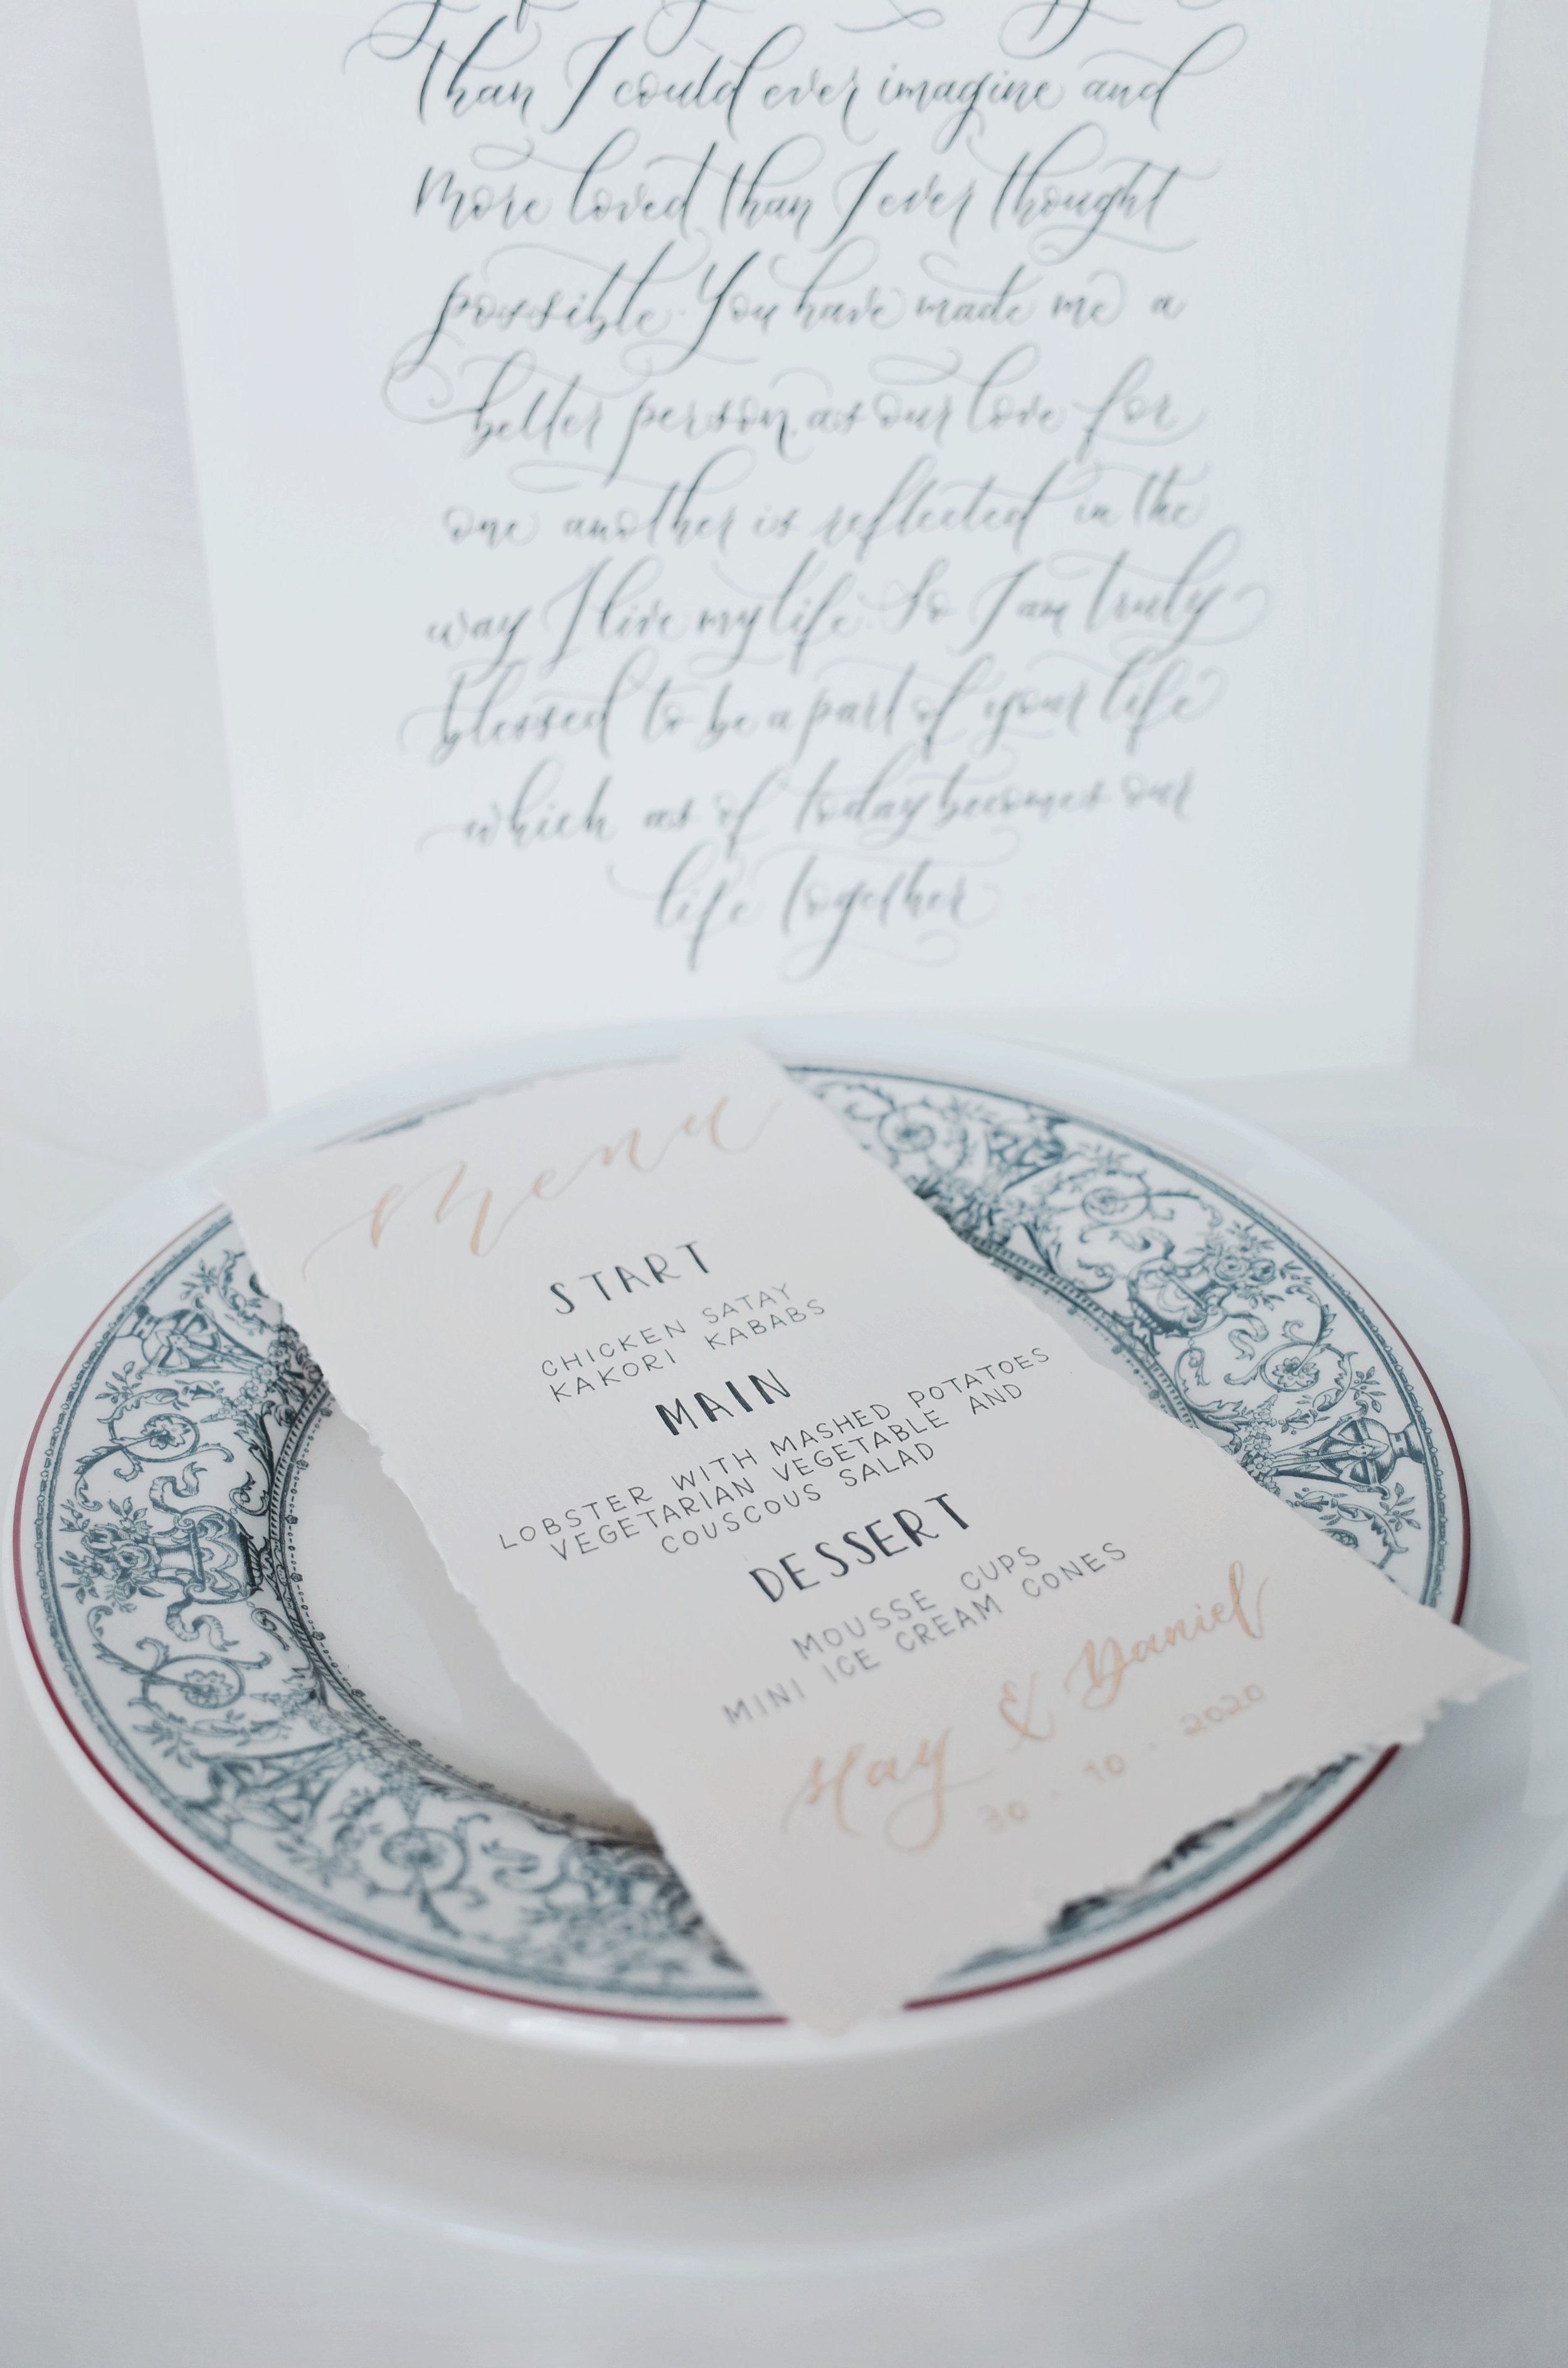 than I could ever imagine and
more loved than I ever thought
possible. You have made me a
better person, as our love for
one another is reflected in the
way I live my life. So I am truly
blessed to be a part of your life
which as of today becomes our
life together
Menu
START
CHICKEN SATAY
KAKORI KABABS
MAIN
LOBSTER WITH MASHED POTATOES
VEGETARIAN VEGETABLE AND
COUSCOUS SALAD
DESSERT
MOUSSE CUPS
MINI ICE CREAM CONES
Hay & Daniel
30 · 10 · 2020